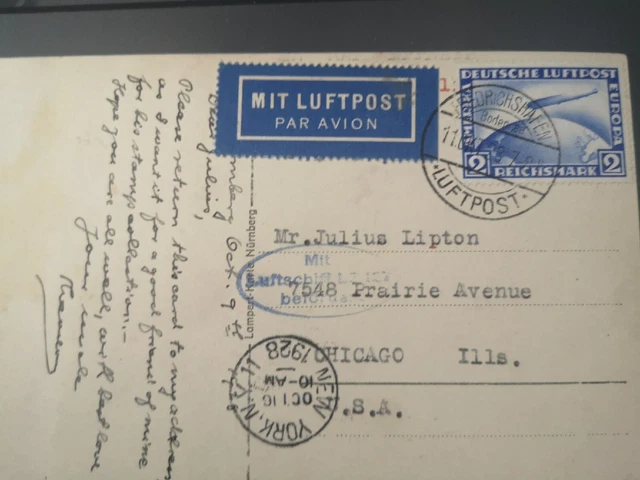 MIT LUFTPOST
PAR AVION
DEUTSCHE LUFTPOST
EUROPA
AMERIKA
2 REICHSMARK 2
FRIEDRICHSHAFEN
Bodensee
LUFTPOST
Mr.Julius Lipton
7548 Prairie Avenue
CHICAGO Ills.
U.S.A.
Mit
Luftschiff LZ 127
befördert
NEW YORK, N.Y.
OCT 16
10-AM
1928
Nürnberg Oct. 9th 1928
Dear Julius,
Please return this card to my address
as I want it for a good friend of mine
for his stamp collection.-
Hope you are all well, with best love
Your uncle